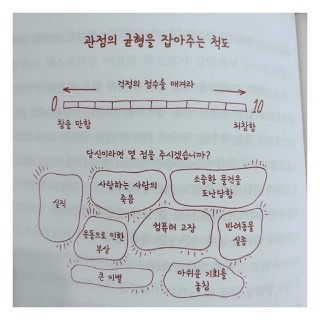 관점의 균형을 잡아주는 척도
걱정의 점수를 매겨라
0
10
참을 만함
처참함
당신이라면 몇 점을 주시겠습니까?
실직
사랑하는 사람의
죽음
소중한 물건을
도난당함
운동으로 인한
부상
컴퓨터 고장
반려동물
실종
큰 이별
아쉬운 기회를
놓침